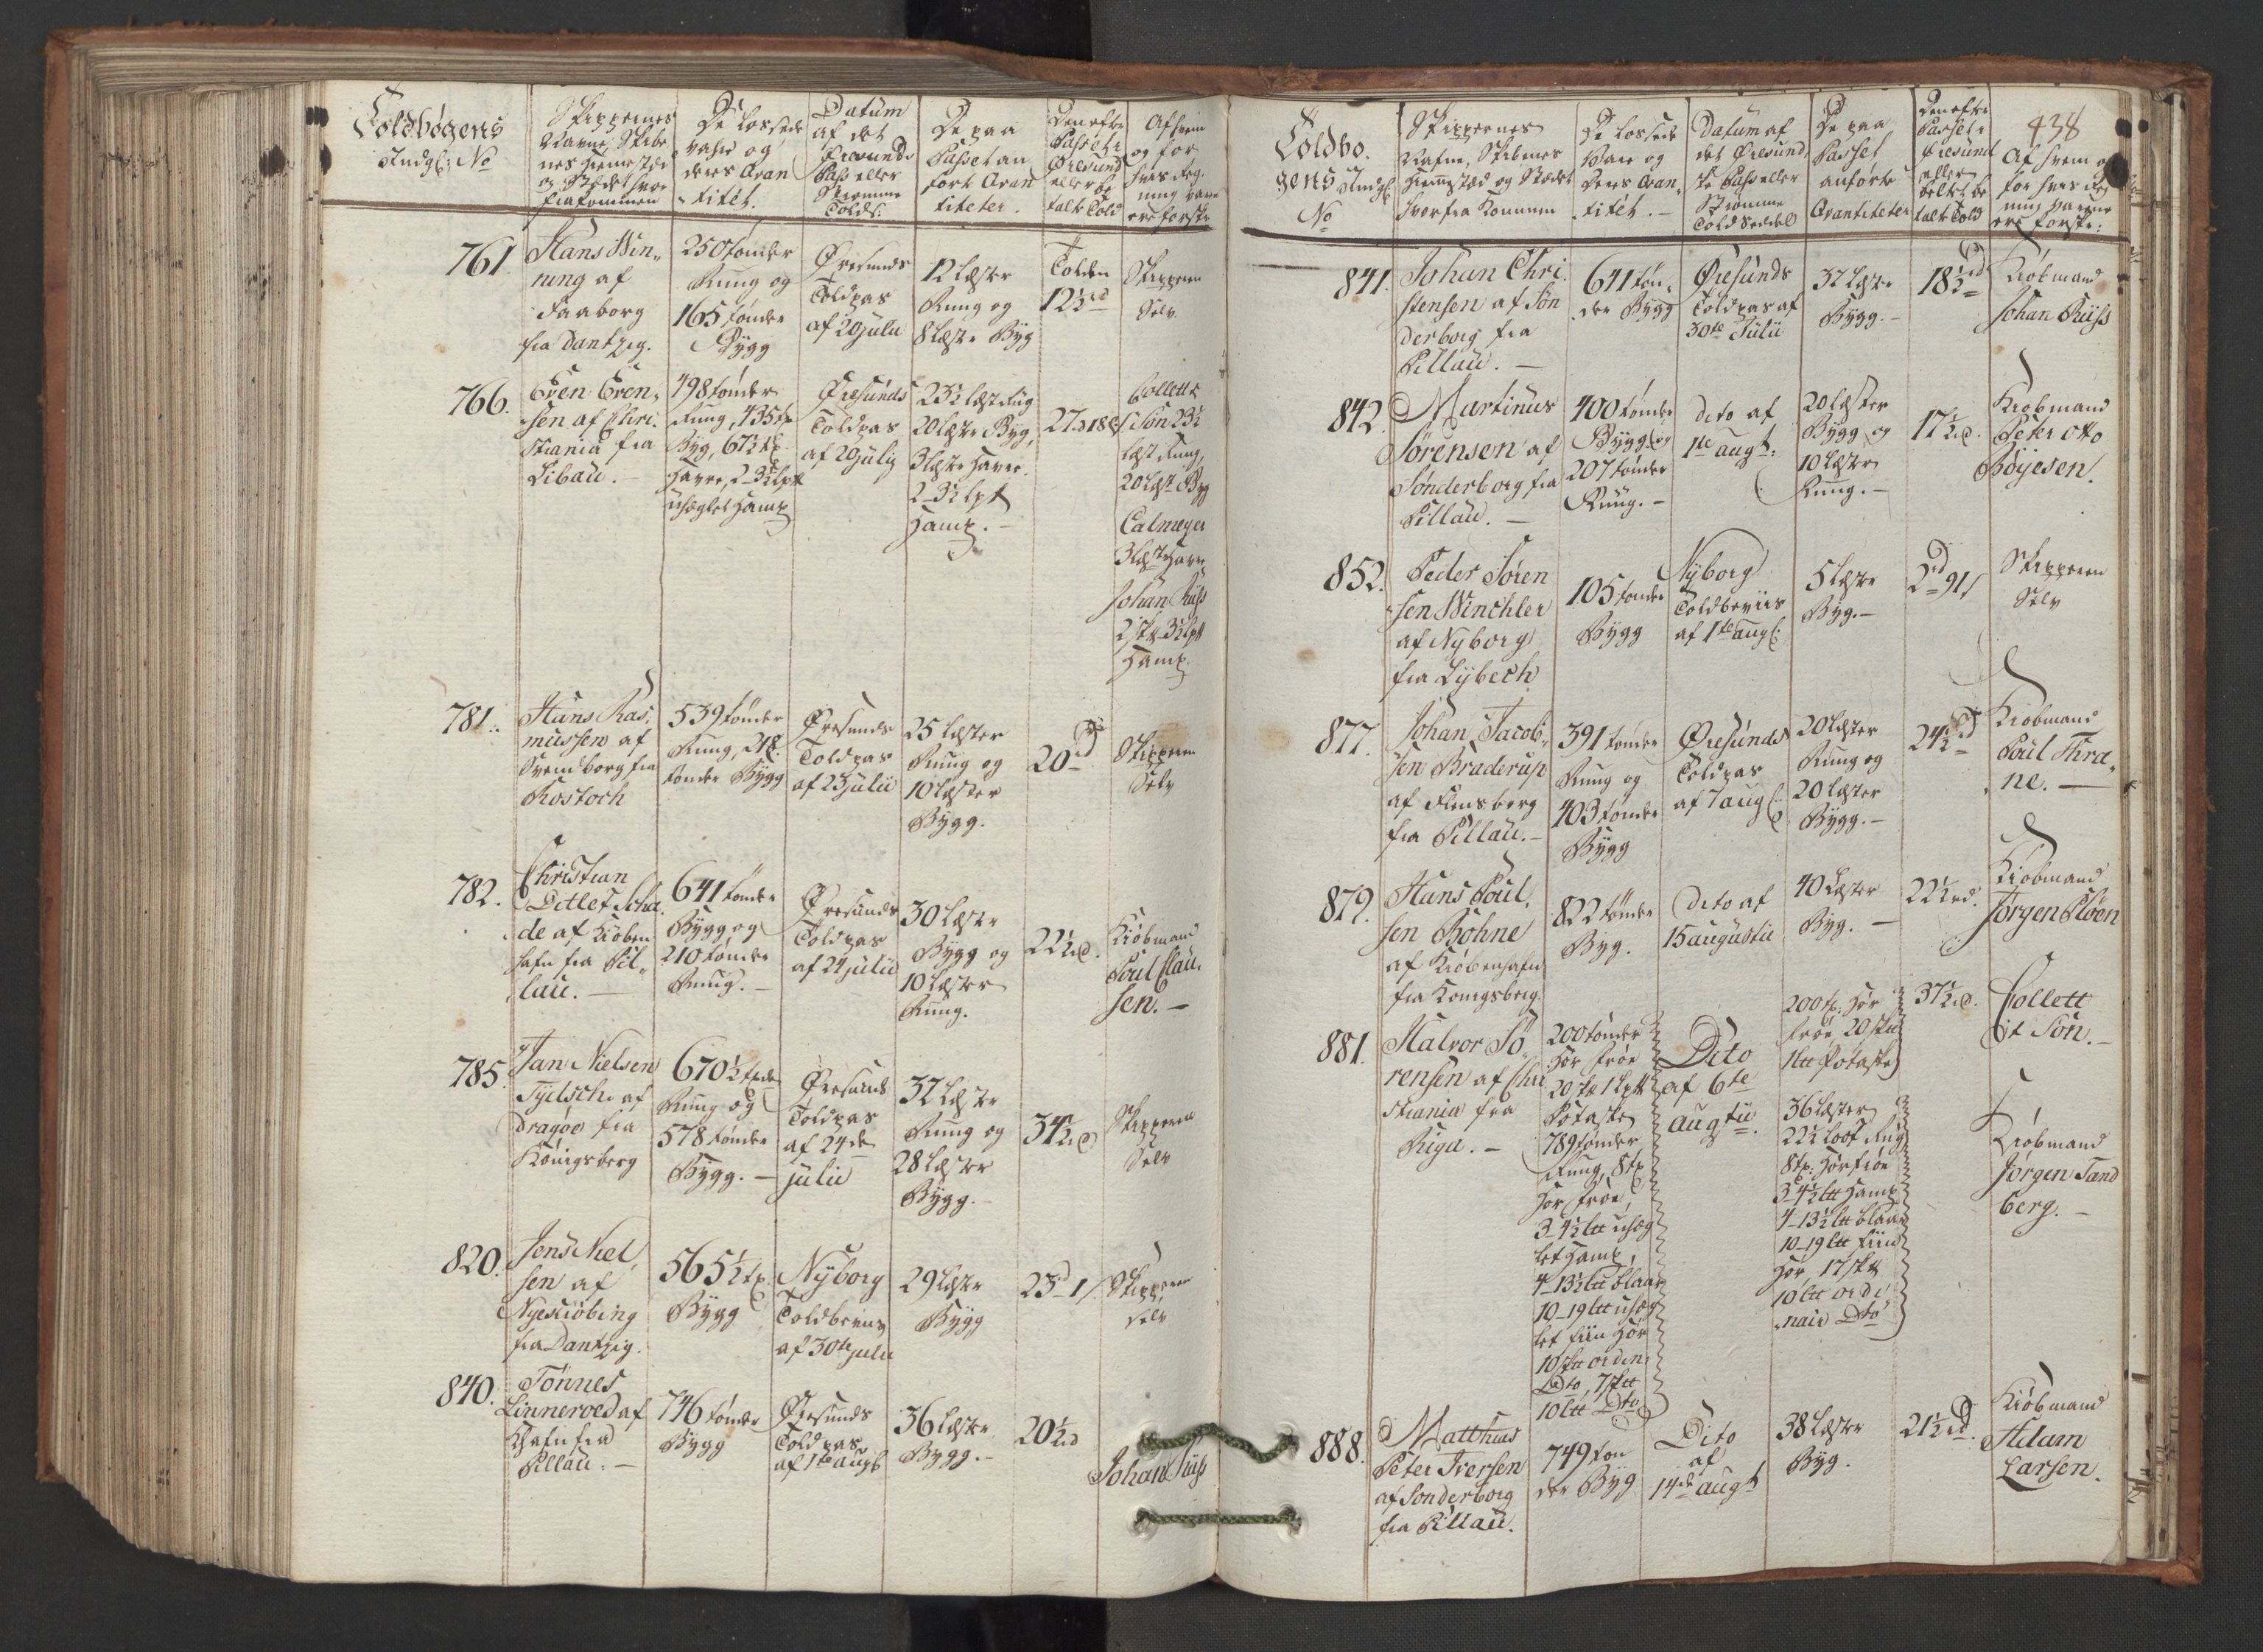 Toldbogens
Indg: No
Skippernes
Navne, Skibe
nes Hiemsted
og Stedet hvor
fra kommen
De lossede
vahre og
deres Qvan
titét.
Datum
af det
Øresunds
Pas eller
Strømme
Tolds:
De paa
Passet an
førte Qvan
titeter.
Den efter
Passet i
Øresund
eller be
talte Told
Af hvem
og for
hvis Reg-
ning vare
ere forste
761.
Hans Win-
ning af
Faaborg
fra Dantzig.
250 tønder
Rug og
165 tønder
Bygg
Øresunds
Toldpas
af 20 julii
12 Læster
Rug og
8 Læster Byg
Tolden
12½ rd
Skipperen
Selv
766.
Even Even-
sen af Chri-
stiania fra
Libau.
498 tønder
Rug, 435 tr
Byg, 67½ tr
Havre, 2-3½ lpd
uhæglet Hamp
Øresunds
Toldpas
af 20 julii
23½ læst Rug
20 Læster Byg,
3 Læster Havre
2-3½ lpd
Hamp.
27 rd 18 s
Collett &
Søn 23½
læst Rug,
20 Læst Byg
Calmeyer
3 Læst Havre
Johan Rüss
2 s℔ 3½ lp℔
Hamp.
781.
Hans Ras-
mussen af
Svendborg fra
Rostock
539 tønder
Rug, 218
tønder Bygg
Øresunds
Toldpas
af 23 julii
25 Læster
Rug og
10 Læster
Bygg.
20 rd
Skipperen
Selv
782.
Christian
Ditlef Scha-
de af Kiøben
hafn fra Pil-
lau.
641 tønder
Bygg og
210 tønder
Rug.
Øresunds
Toldpas
af 24 julii
30 Læster
Bygg og
10 Læster
Rug.
22½ rd.
Kiøbmand
Poul Clau-
sen.
785.
Jan Nielsen
Tyilsch af
Dragøe fra
Königsberg
670½ tønder
Rug og
578 tønder
Bygg.
Øresunds
Toldpas
af 24de
julii
32 Læster
Rug og
28 Læster
Bygg.
34½ rd
Skipperen
Selv
820.
Jens Niel-
sen af
Nyekiøbing
fra Dantzig.
565½ tr
Bygg
Nyborg
Toldbeviis
af 30te julii
29 Læster
Bygg
23 rd 1 s
Skipperen
selv
840.
Tönnes
Linneroed af
Khafn fra
Pillau.
746 tønder
Bygg
Øresunds
Toldpas
af 1te Aug
36 Læster
Bygg.
20½ rd
Johan Rüss
Toldbo-
gens Indg:
No
Skippernes
Nafne, Skibenes
Hiemsted og Stædet
hvorfra kommen
De lossede
Vare og
deres Qvan-
titét.
Datum af
det Øresund
ske Pas eller
Strømme
Toldseddel
De paa
Passet
anførte
Qvantiteter
Den efter
Passet i
Øresund
eller
beltet be
talte Told
438
Af hvem og
for hvis Reg
ning Varerne
ere forste:
841.
Johan Chri-
stensen af Søn
derborg fra
Pillau.
641 tøn-
der Bygg
Øresunds
Toldpas af
30te Julii
32 Læster
Bygg.
18½ rd
Kiøbmand
Johan Rüss
842.
Martinus
Sørensen af
Sønderborg fra
Pillau.
400 tønder
Bygg og
207 tønder
Rug.
dito af
1te augt:
20 Læster
Bygg og
10 Læster
Rug.
17½ rd.
Kiøbmand
Peter Otto
Bøyesen.
852.
Peder Søren
sen Winchler
af Nyborg
fra Lybech
105 tønder
Bygg
Nyborg
Toldbeviis
af 1te aug:
5 Læster
Byg.
2 rd 91 s
Skipperen
Selv
877.
Johan Jacob-
sen Braderup
af Flensborg
fra Pillau.
391 tønder
Rug og
403 tønder
Bygg
Øresunds
Toldpas
af 7 aug:
20 Læster
Rug og
20 Læster
Bygg.
24½ rd
Kiøbmand
Poul Thra-
ne.
879.
Hans Poul-
sen Bohne
af Kiøbenhafn
fra Konigsberg.
822 tønder
Byg.
Dito af
15 augusti
40 Læster
Byg.
22½ rd.
Kiøbmand
Jørgen Pløen
881.
Halvor Sø-
rensen af Chri
stiania fra
Riga.
200 tønder
Hør frøe
20 s℔ 1 lp℔
Potaske
789 tønder
Rug, 8 tr
Hør frøe,
3-4½ l℔ uhæg
let Hamp,
4-13½ l℔ blaar
10-19 l℔ uhæg
let fiin Hør
10 s℔ ordin:
Dto, 7 s℔
10 l℔ Dto
Dito
af 6te
augtii.
200 tr. Hør
frøe, 20 s℔
1 l℔ Potaske
36 Læster
22½ Loof Rug
8 tr. Hørfrøe
3-4½ l℔ Hamp
4-13½ l℔ blaar
10-19 l℔ fiin
Hør, 17 s℔
10 l℔ ordi-
nair Dto
37½ rd.
Collett
et Søn.
Kiøbmand
Jørgen Sand
berg.
888.
Matthias
Peter Iversen
af Sonderborg
fra Pillau.
749 tøn
der Byg
Dito
af
14de augt
38 Læster
Byg.
21½ rd.
Kiøbmand
Adam
Larsen.